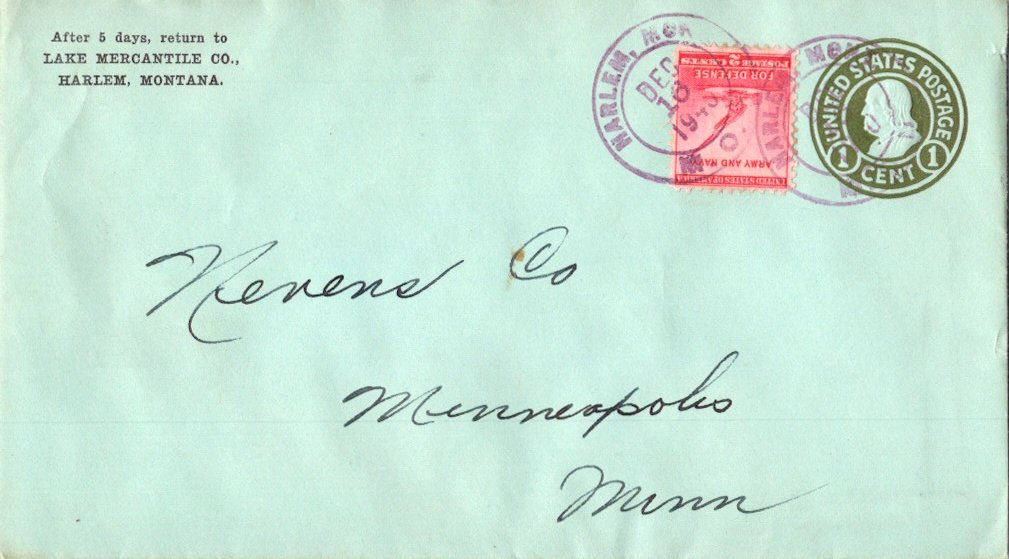 After 5 days, return to
LAKE MERCANTILE CO.,
HARLEM, MONTANA.
HARLEM, MONT
DEC
18
M. O.
UNITED STATES OF AMERICA
ARMY AND NAVY
FOR DEFENSE
POSTAGE 2 CENTS
HARLEM MONT
UNITED STATES POSTAGE
1 CENT 1
Nevens Co
Minneapolis
Minn